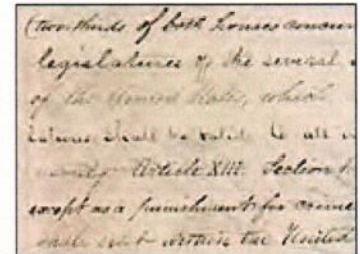 (two-thirds of both houses concur
legislatures of the several
of the United States, which
latures shall be valid to all in
namely Article XIII. Section
except as a punishment for crime
shall exist within the United